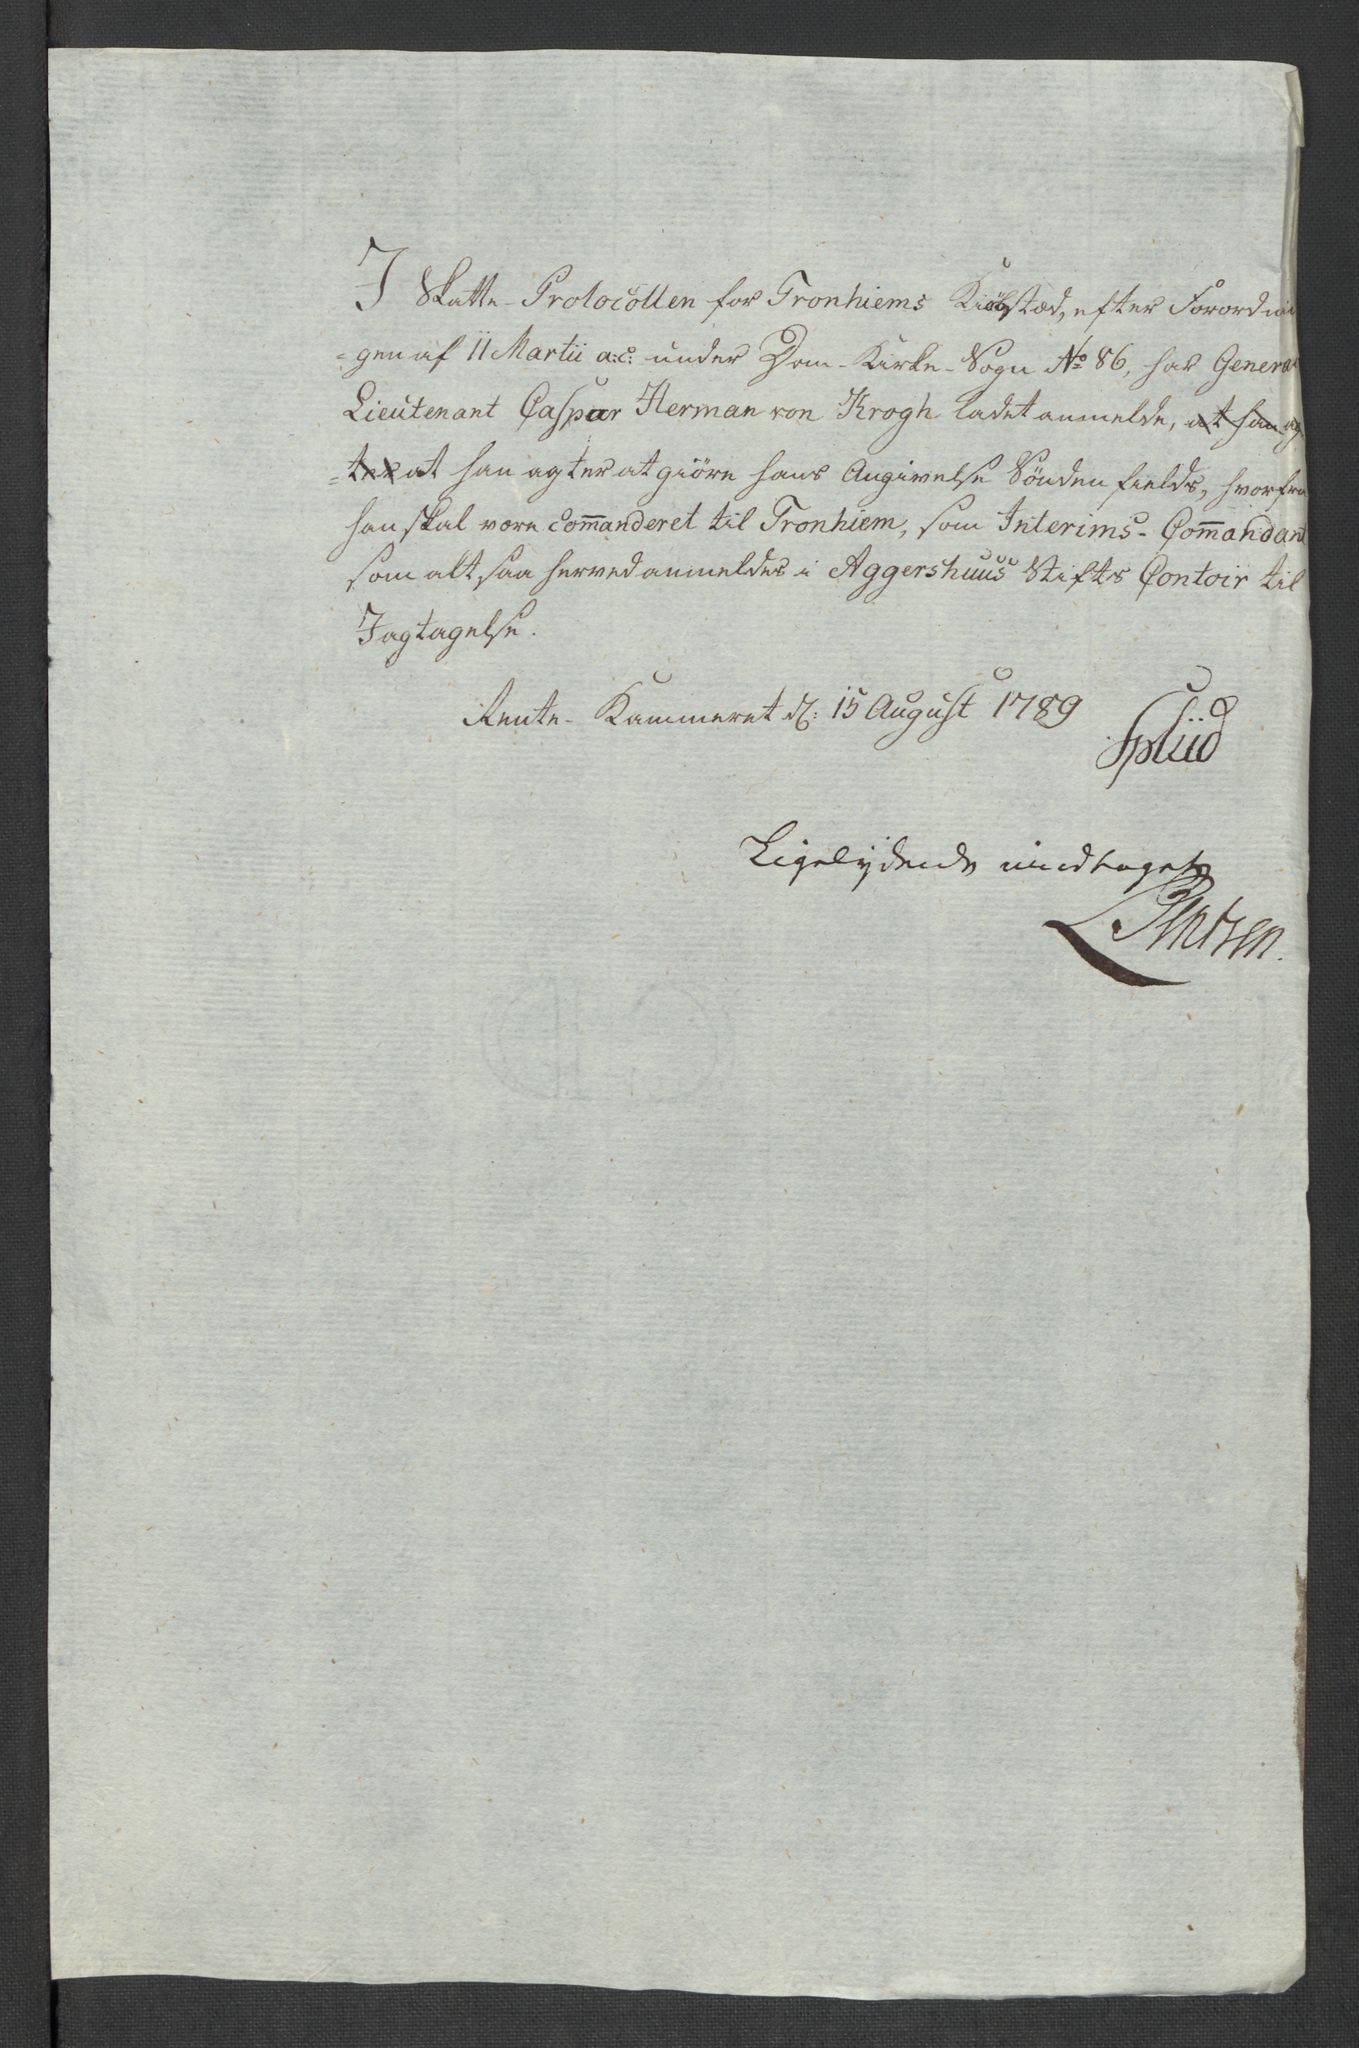 I Skatte-Protocollen for Tronhiems Kiöbstæd, efter Forordnin
=gen af 11 Martii a:c: under Dom-Kirke-Sogn No 86, har General
Lieutenant Caspar Herman von Krogh ladet anmelde, at han ag
=ter at han agter at giöre hans Angivelse Sönden fields, hvorfra
han skal være Commanderet til Tronhiem, som Interims-Commandant
som altsaa herved anmeldes i Aggershuus Stifts Contoir til
Iagtagelse.
Rente-Kammeret d: 15 August 1789
Ligelydende modtaget